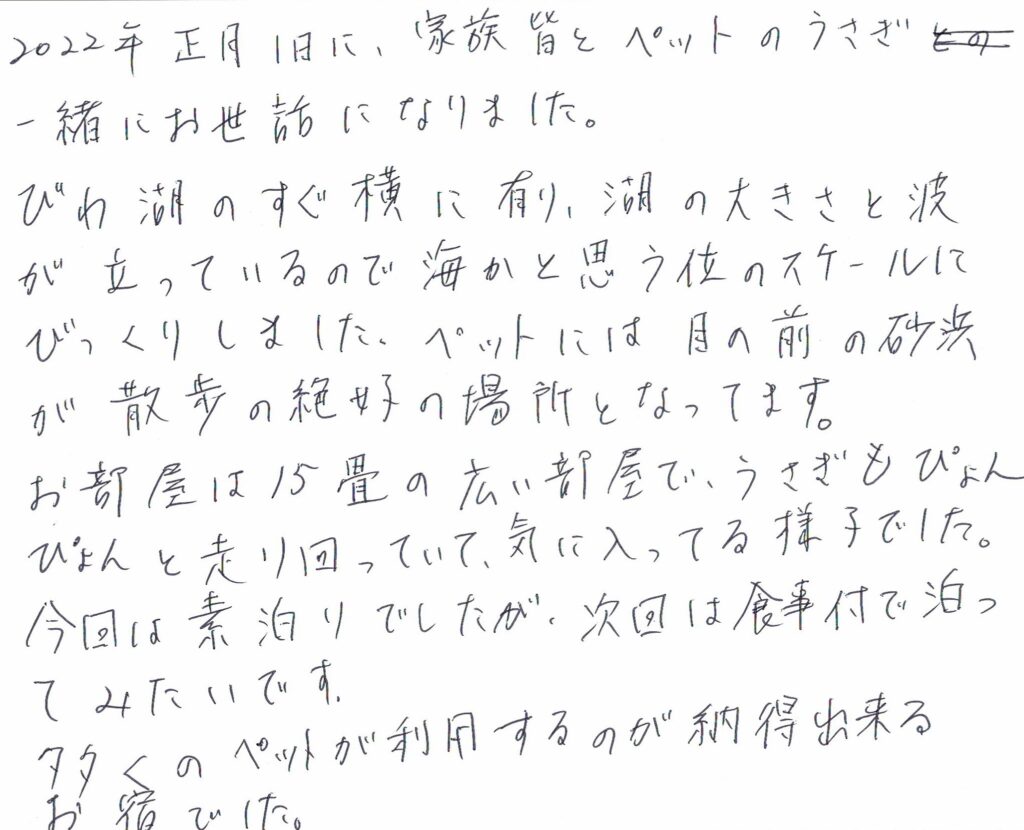 2022年 正月1日に、家族皆とペットのうさぎ
一緒にお世話になりました。
びわ湖のすぐ横に有り、湖の大きさと波
が立っているので海かと思う位のスケールに
びっくりしました、ペットには目の前の砂浜
が散歩の絶好の場所となってます。
お部屋は15畳の広い部屋で、うさぎもぴょん
ぴょんと走り回っていて、気に入ってる様子でした。
今回は素泊りでしたが、次回は食事付で泊っ
てみたいです。
多くのペットが利用するのが納得出来る
お宿でした。